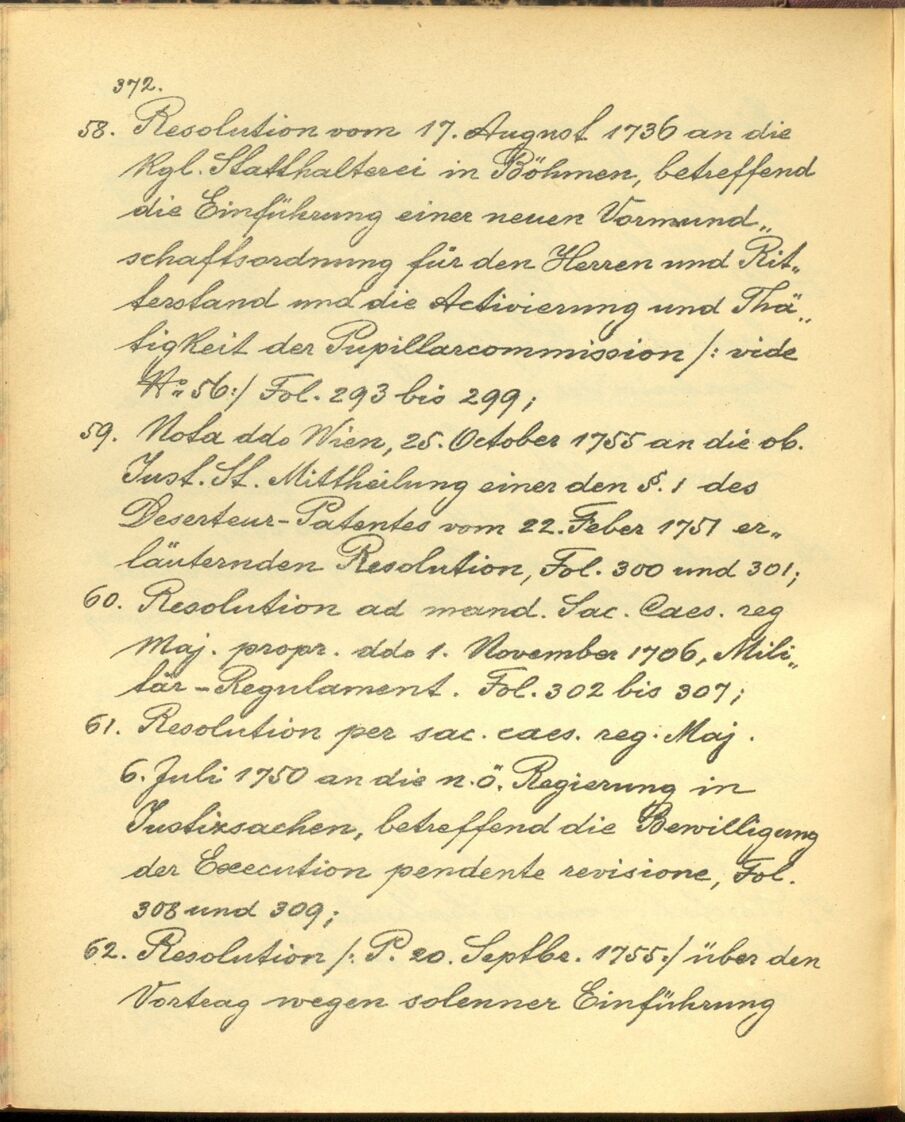 372.
58. Resolution vom 17. August 1736 an die
Kgl. Statthalterei in Böhmen, betreffend
die Einführung einer neuen Vormund„
schaftsordnung für den Herren und Rit„
terstand und die Activierung und Thä„
tigkeit der Pupillarcommission /: vide
No. 56:/ Fol. 293 bis 299;
59. Nota ddo Wien, 25. October 1755 an die ob.
Just. St. Mittheilung einer den §. 1 des
Deserteur-Patentes vom 22. Feber 1751 er„
läuternden Resolution, Fol. 300 und 301;
60. Resolution ad mand. Sac. Caes. reg
Maj. propr. ddo 1. November 1706, Mili„
tär-Regulament. Fol. 302 bis 307;
61. Resolution per sac. caes. reg. Maj.
6. Juli 1750 an die n.ö. Regierung in
Justizsachen, betreffend die Bewilligung
der Execution pendente revisione, Fol.
308 und 309;
62. Resolution /: P. 20. Septbr. 1755:/ über den
Vortrag wegen solenner Einführung